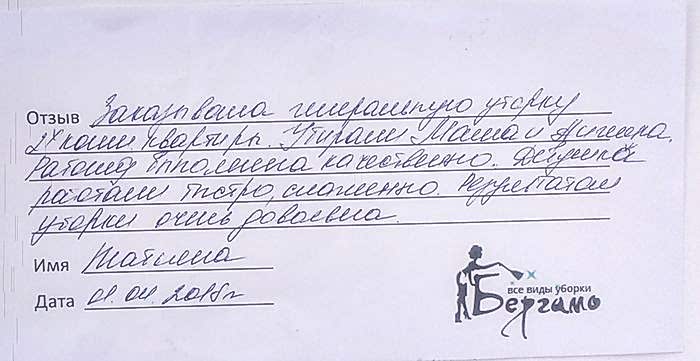 Отзыв Заказывала генеральную уборку
2х комн. квартиры. Убирали Маша и Анжела.
Работа выполнена качественно. Девушки
работали быстро, слаженно. Результатом
уборки очень довольна.
Имя Татьяна
Дата 01.04.2015г
все виды уборки
Бергамо